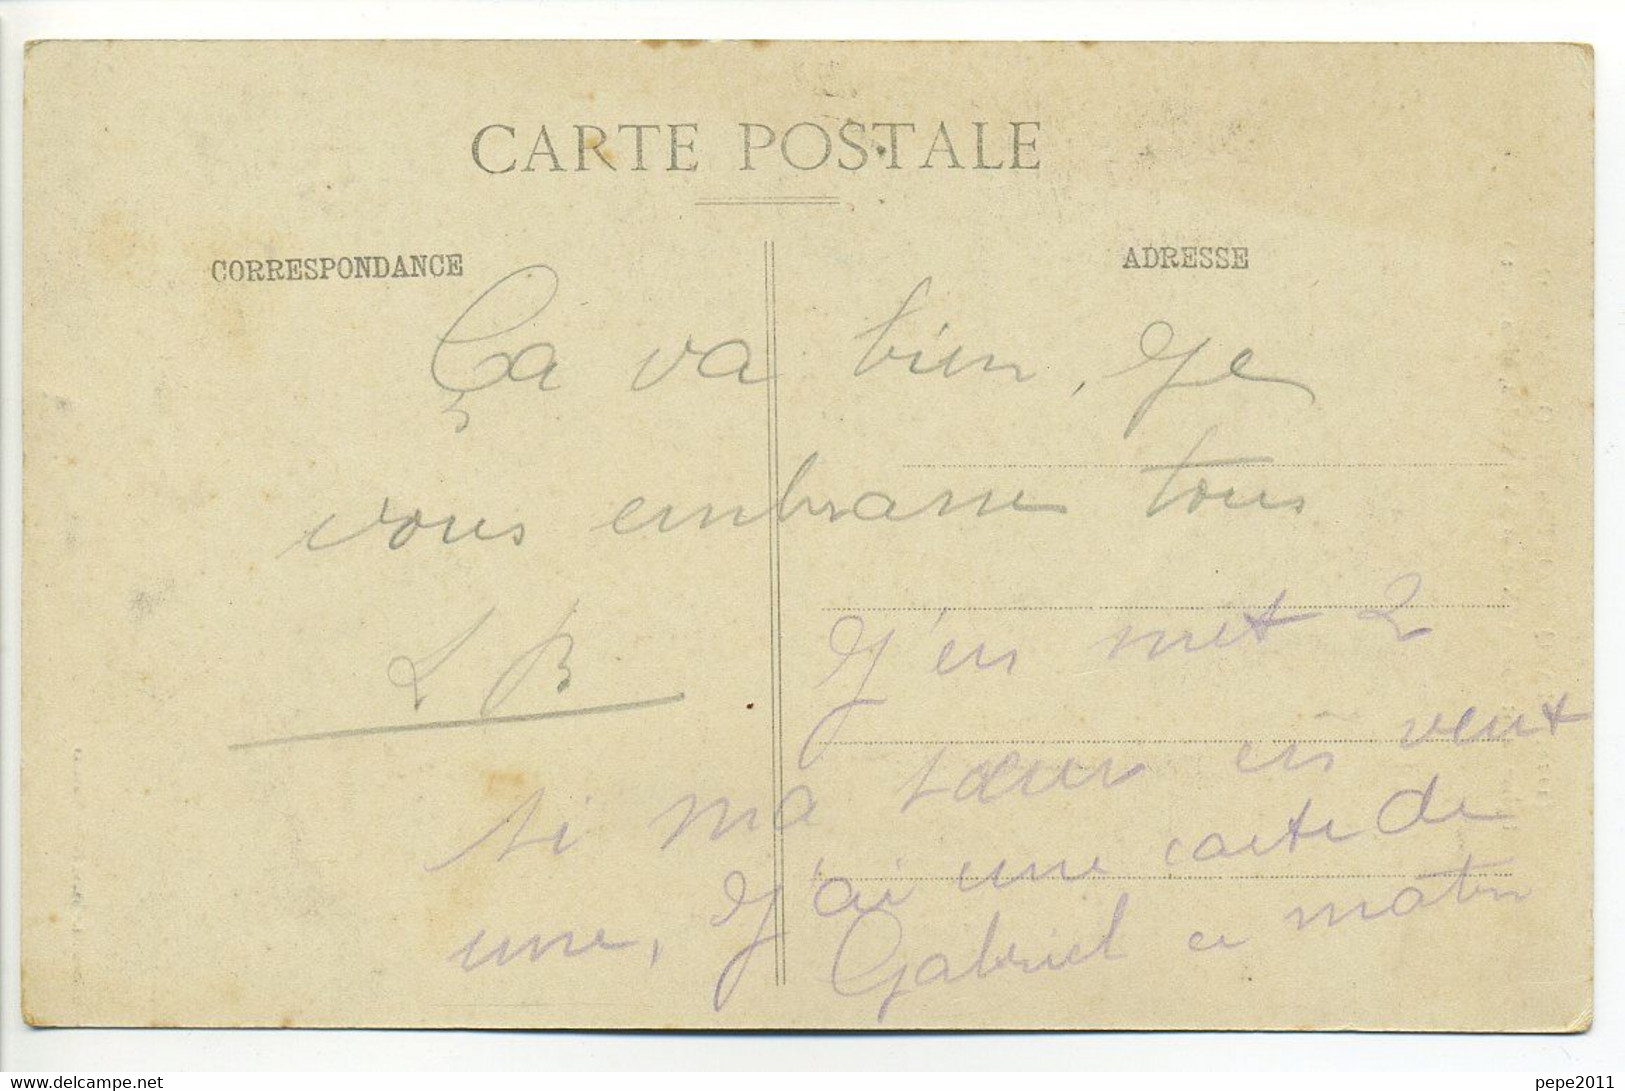 CARTE POSTALE
CORRESPONDANCE
ADRESSE
Ça va bien, Je
vous embrasse tous
L B
J'en met 2
si ma sœur en veut
une, J'ai une carte de
Gabriel ce matin
www.delcampe.net
pepe2011